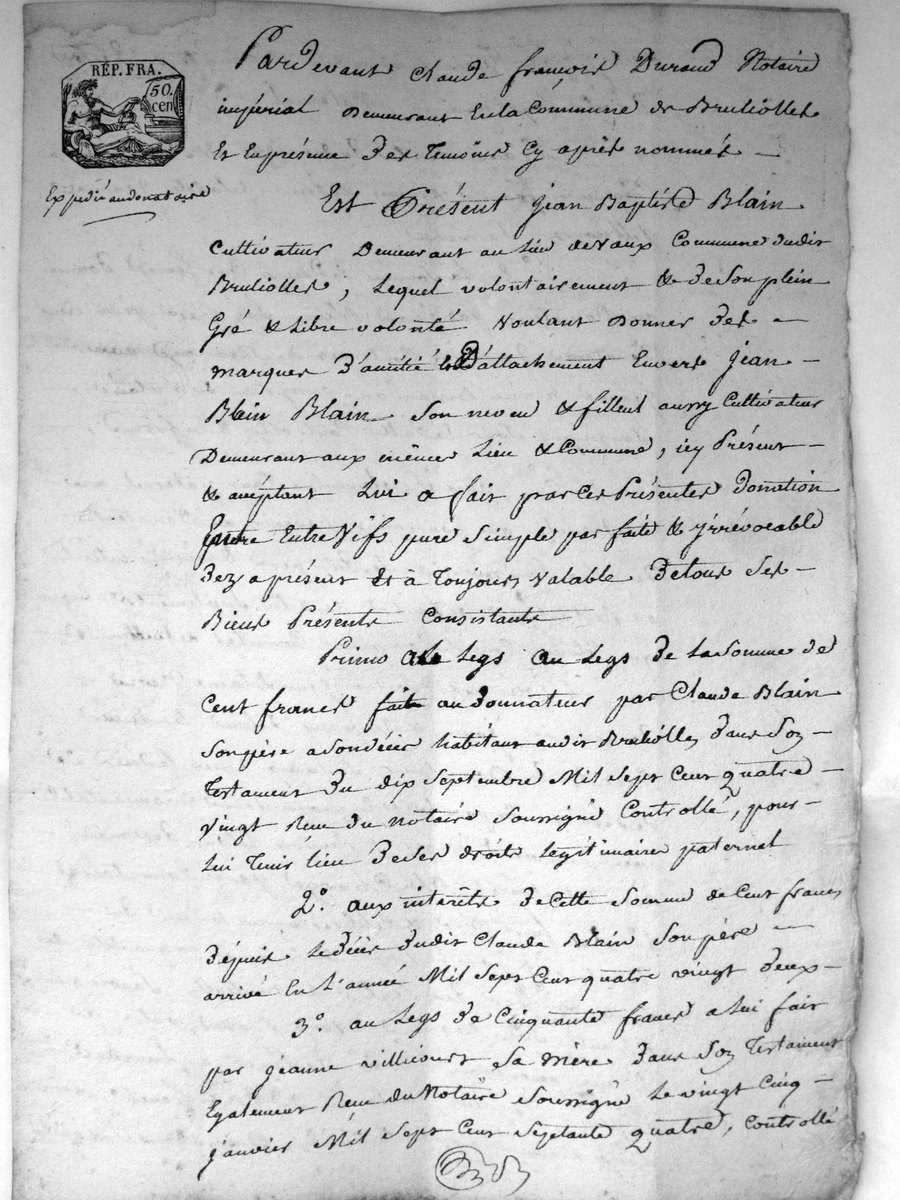 RÉP. FRA.
50.
cen
Expédié au donataire
Pardevant Claude françois Durand Notaire
impérial Demeurant En la Commune de Brulliolles
Et En présence Des Temoins Cy après nommés —
Est Présent Jean Baptiste Blain
Cultivateur Demeurant au Lieu de Vaux Commune dudit
Brulliolles, Lequel volontairement & De Son plein
Gré & Libre volonté Voulant Donner Des —
marques D'amitié & D'attachement Envers Jean —
Blain Son neveu & filleul aussy Cultivateur
Demeurant aux mêmes Lieu & Commune, icy Présent —
& acceptant Lui a fait par Ces Présentes Donation
Entre Vifs pure Simple parfaite & yrrévocable
Dez a présent Et à Toujours Valable De tous Ses —
Biens Présents Consistants
Primo au Legs De La Somme de
Cent francs fait au Donnateur par Claude Blain
Son père a Son décès habitant audit Brulliolles Dans Son —
Testament Du dix Septembre Mil Sept Cent quatre —
vingt Reçu Du Notaire Soussigné Controllé, pour —
Lui Tenir Lieu De Ses droits Legitimaires paternel
2.° aux intérêts De Cette Somme de Cent francs
Dépuis Le Décès Dudit Claude Blain Son père —
arrivé En L'année Mil Sept Cent quatre vingt Deux —
3.° au Legs De Cinquante francs a Lui fait
par Jeanne Villecourt Sa Mère Dans Son Testament
Egalement Reçu Du Notaire Soussigné Le vingt Cinq —
janvier Mil Sept Cent Septante quatre, Controllé